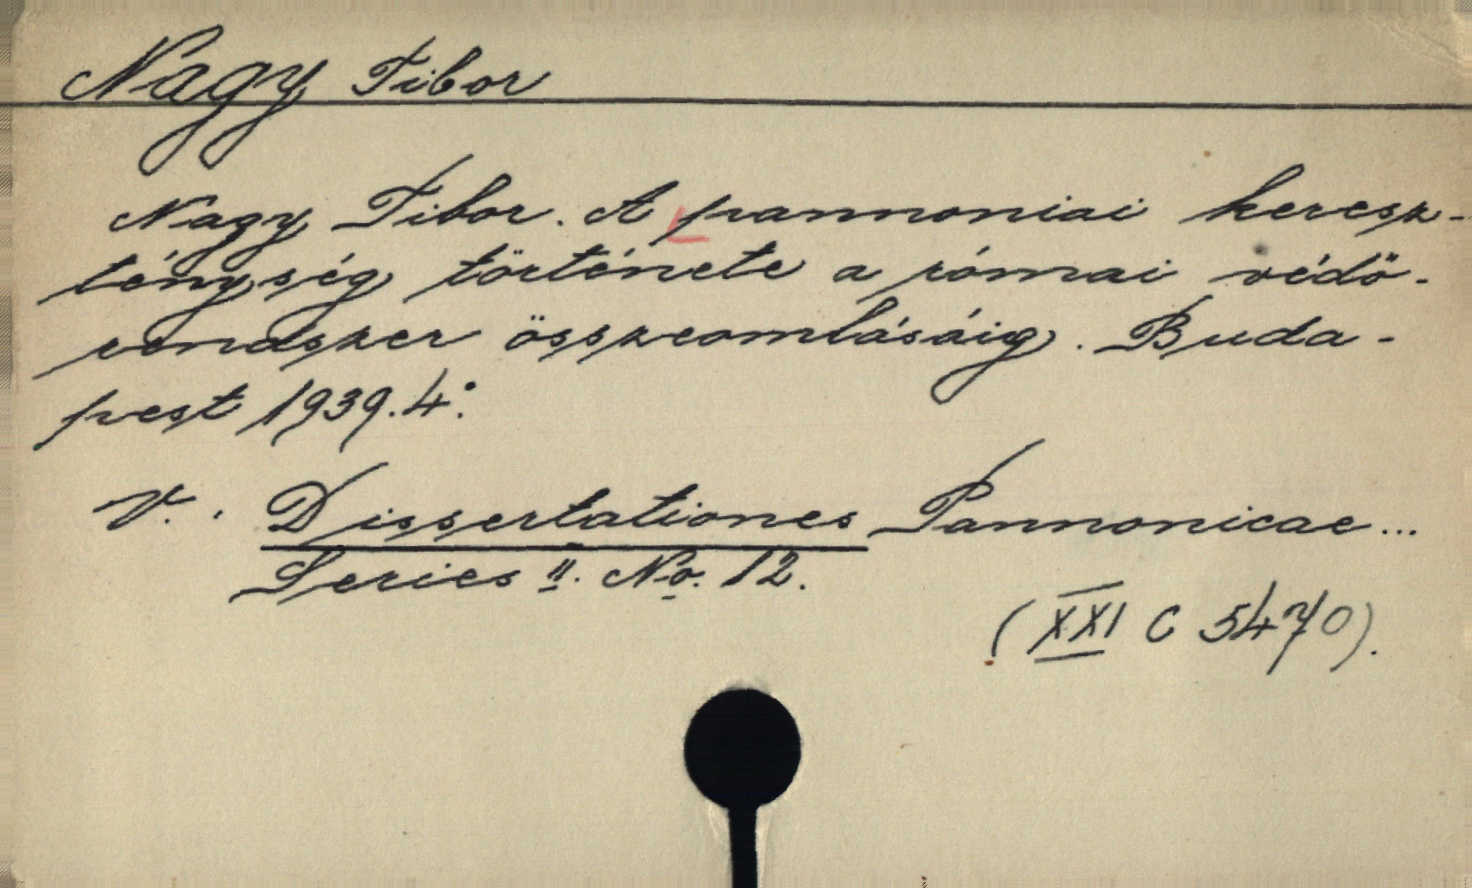 Nagy Tibor
Nagy Tibor. A pannoniai keresz-
ténység története a római védő-
rendszer összeomlásáig. Buda-
pest 1939. 4°.
V. . Dissertationes Pannonicae...
Series II. No. 12.
(XXI C 5470).